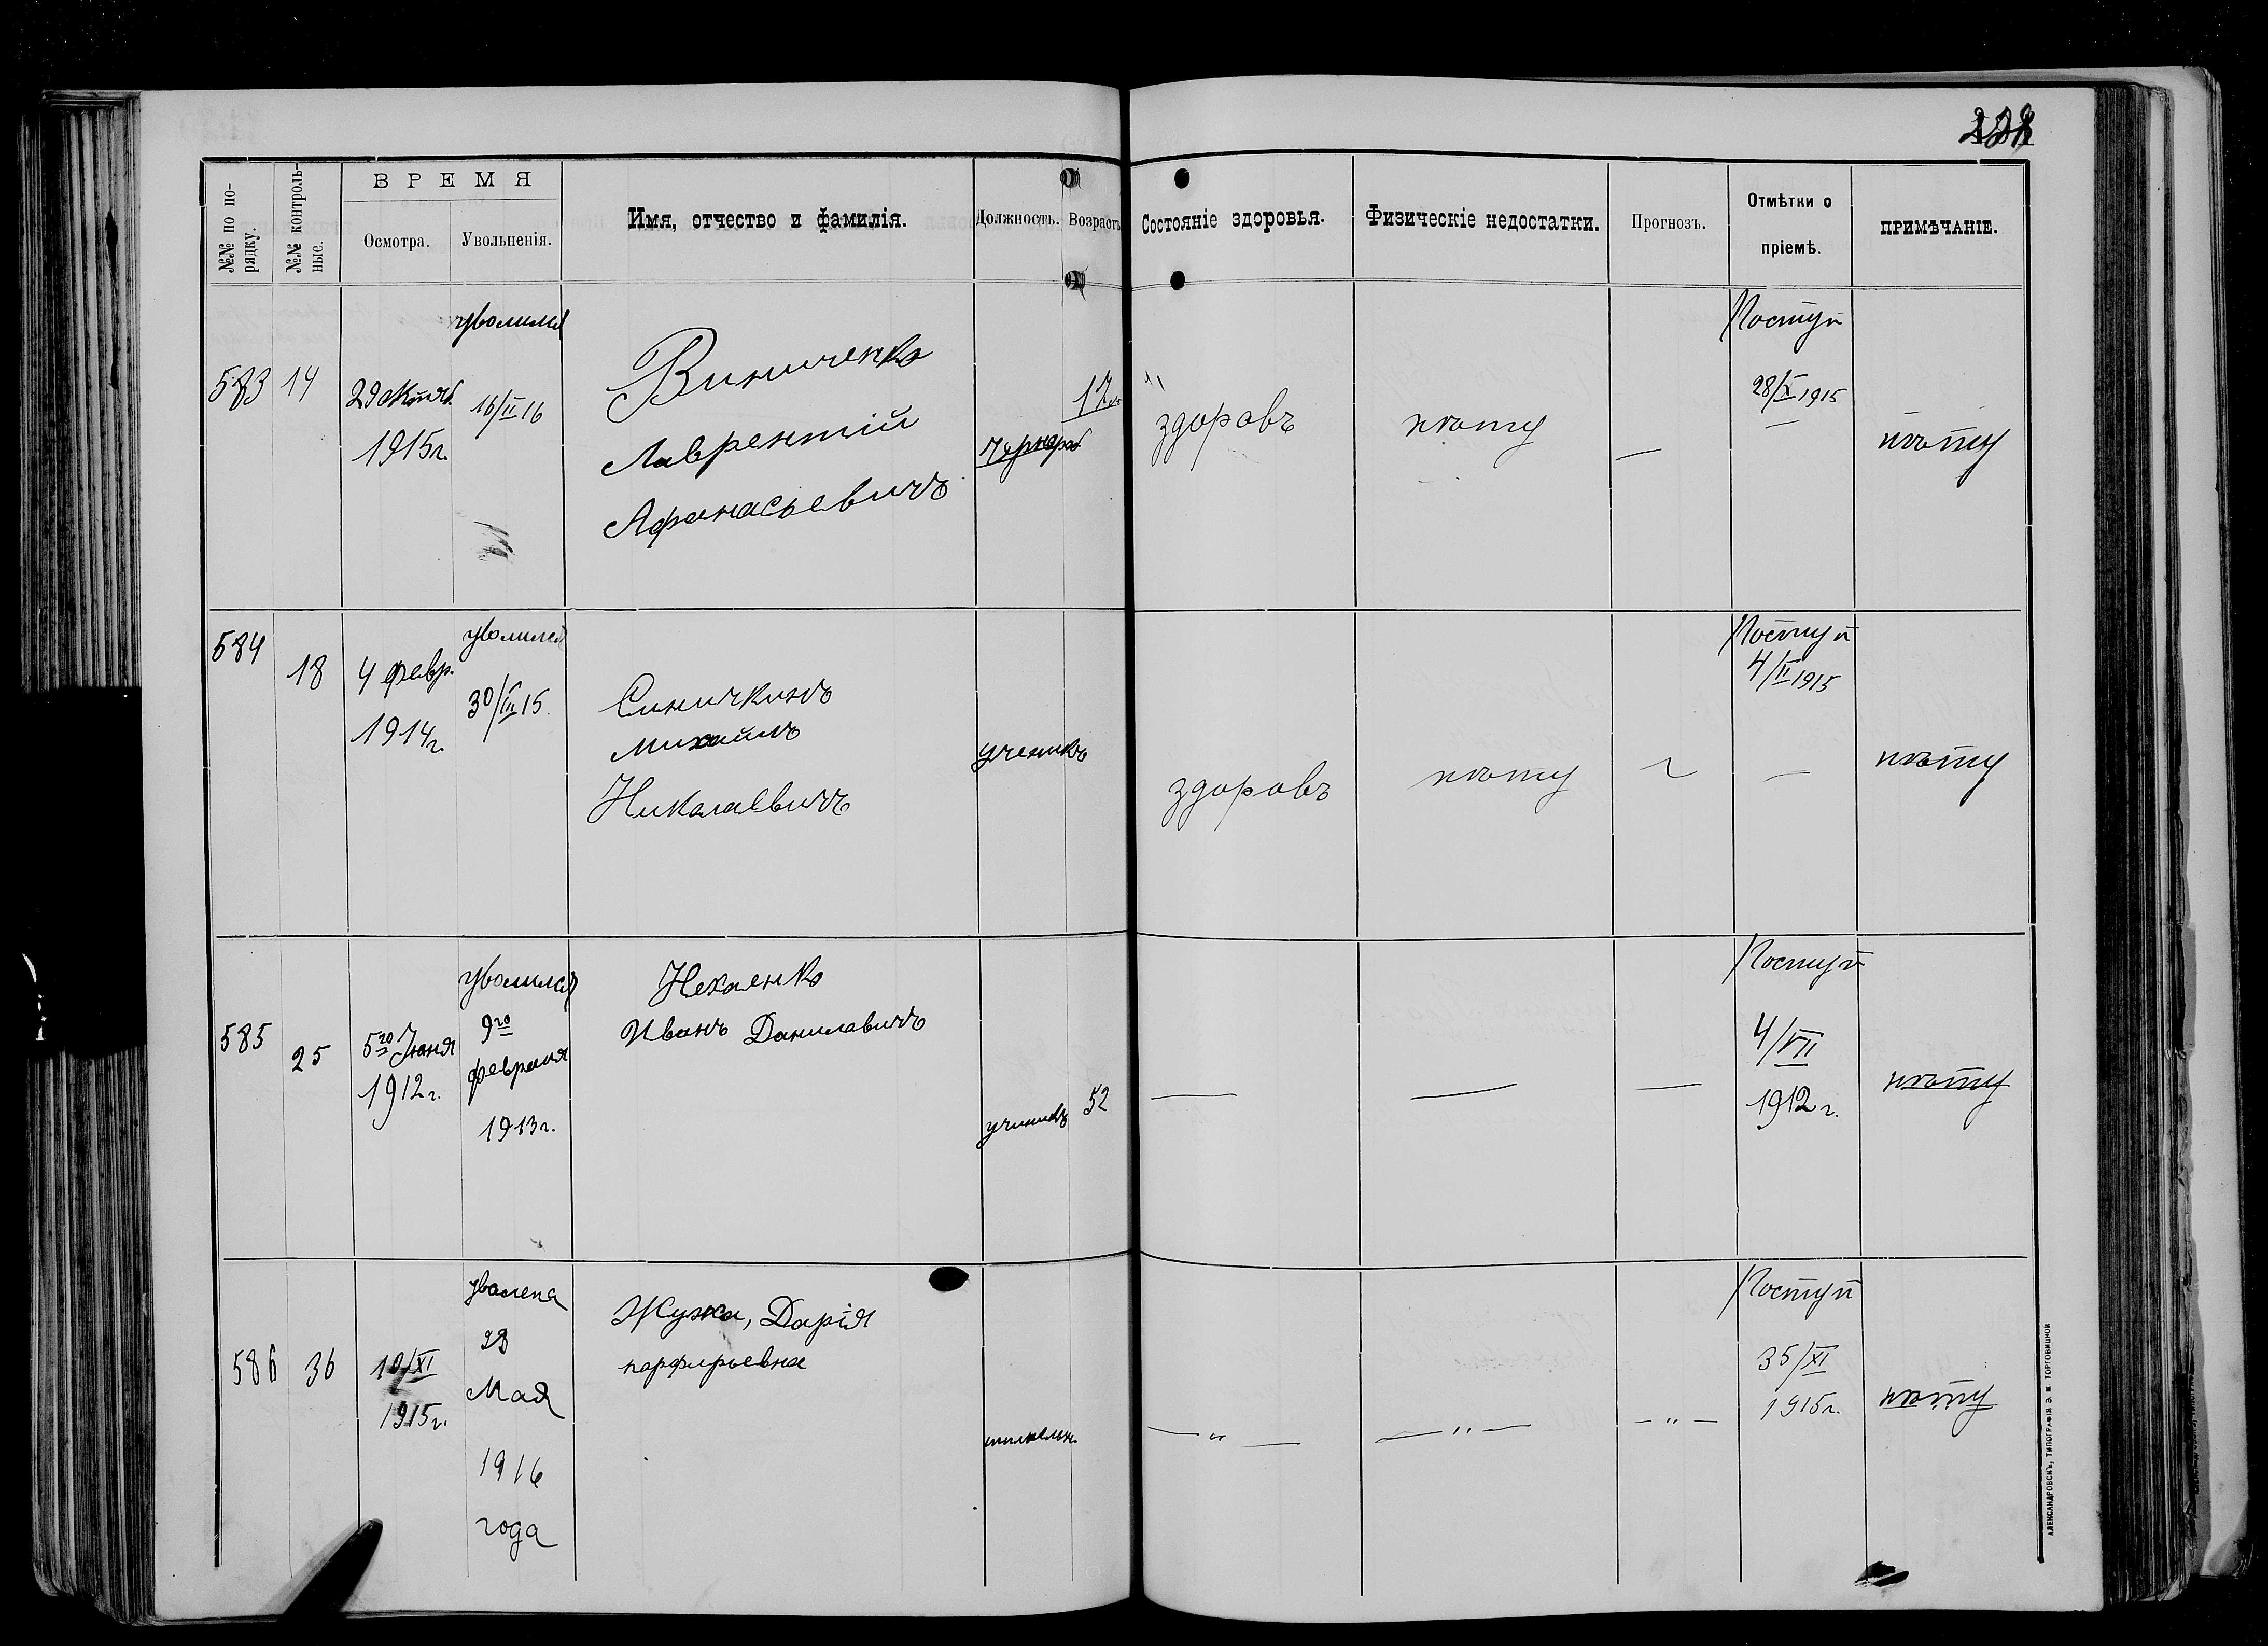 №№ по по-
рядку.
№№ контроль-
ные.
ВРЕМЯ
Осмотра.
Увольненія.
Имя, отчество и фамилія.
Должность.
Возрастъ
Состояніе здоровья.
Физическіе недостатки.
Прогнозъ.
Отмѣтки о
пріемѣ.
ПРИМѢЧАНІЕ.
583
14
29 октяб.
1915г.
уволился
16/II 16
Виниченко
Лаврентій
Афанасьевичъ
чернораб
17
здоровъ
нѣту
—
Поступ
28/X 1915
—
нѣту
584
18
4 февр.
1914г.
уволился
30/III 15
Синичкинъ
Михаилъ
Николаевичъ
ученикъ
здоровъ
нѣту
Поступ
4/II 1915
—
нѣту
585
25
5го Іюня
1912г.
уволился
9го
февраля
1913г.
Нехаенко
Иванъ Даниловичъ
ученикъ
52
—
—
—
Поступ
4/VII
1912г.
нѣту
586
36
10/XI
1915г.
уволена
28
Мая
1916
года
Жужа, Дарія
порфирьевна
— " —
— " —
— " —
Поступ
35/XI
1915г.
нѣту
АЛЕКСАНДРОВСКЪ, ТИПОГРАФІЯ Э. М. ТОРГОВИЦКОЙ